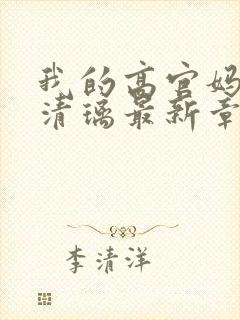 我的高官妈
清璃最新章
李清洋